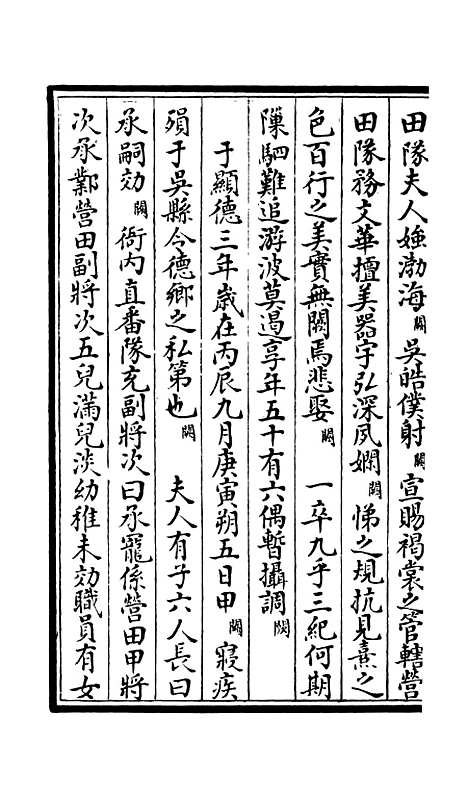 田隊夫人嫓渤海闕吳皓僕射闕宣賜褐裳之管轄營
田隊務文華擅美器宇弘深夙嫻闕悌之規抗見熹之
色百行之美實無闕焉悲娶闕一卒九乎三紀何期
隟駟難追游波莫遏享年五十有六偶暫攝調闕
于顯德三年歲在丙辰九月庚寅朔五日甲闕寢疾
殞于吳縣令德鄉之私第也闕夫人有子六人長曰
承嗣効闕衙內直番隊充副將次曰承寵係營田甲將
次承鄴營田副將次五兒滿兒淡幼稚未効職員有女